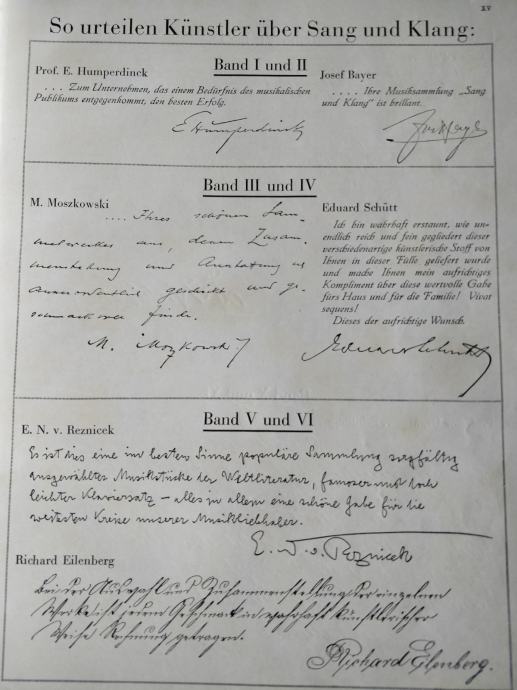 XV
So urteilen Künstler über Sang und Klang:
Band I und II
Prof. E. Humperdinck
. . . . Zum Unternehmen, das einem Bedürfnis des musikalischen
Publikums entgegenkommt, den besten Erfolg.
E Humperdinck
Josef Bayer
. . . . Ihre Musiksammlung „Sang
und Klang“ ist brillant.
Josef Bayer
Band III und IV
M. Moszkowski
.... Ihres schönen Sam-
melwerkes aus, deren Zusam-
menstellung und Ausstattung ich
ausserordentlich geschickt und ge-
schmackvoll finde.
M. Moszkowski
Eduard Schütt
Ich bin wahrhaft erstaunt, wie un-
endlich reich und fein gegliedert dieser
verschiedenartige künstlerische Stoff von
Ihnen in dieser Fülle geliefert wurde
und mache Ihnen mein aufrichtiges
Kompliment über diese wertvolle Gabe
fürs Haus und für die Familie! Vivat
sequens!
Dieses der aufrichtige Wunsch.
Eduard Schütt
Band V und VI
E. N. v. Reznicek
Es ist dies eine im besten Sinne populäre Sammlung sorgfältig
ausgewählter Musikstücke der Weltliteratur, famoser und doch
leichter Klaviersatz – alles in allem eine schöne Gabe für die
weitesten Kreise unserer Musikliebhaber.
E. N. v. Reznicek
Richard Eilenberg
Bei der Auswahl und Zusammenstellung der einzelnen
Werke ist jedem Geschmack in wahrhaft künstlerischer
Weise Rechnung getragen.
Richard Eilenberg.